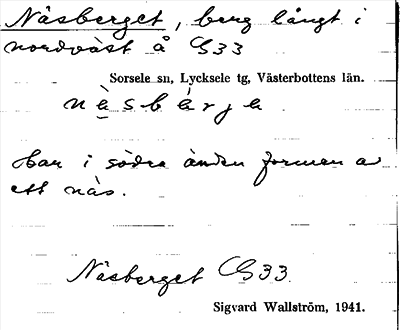 Näsberget, berg långt i
nordväst å G33
Sorsele sn, Lycksele tg, Västerbottens län.
nä̀sbǽrje
Har i södra änden formen av
ett näs.
Näsberget G33.
Sigvard Wallström, 1941.